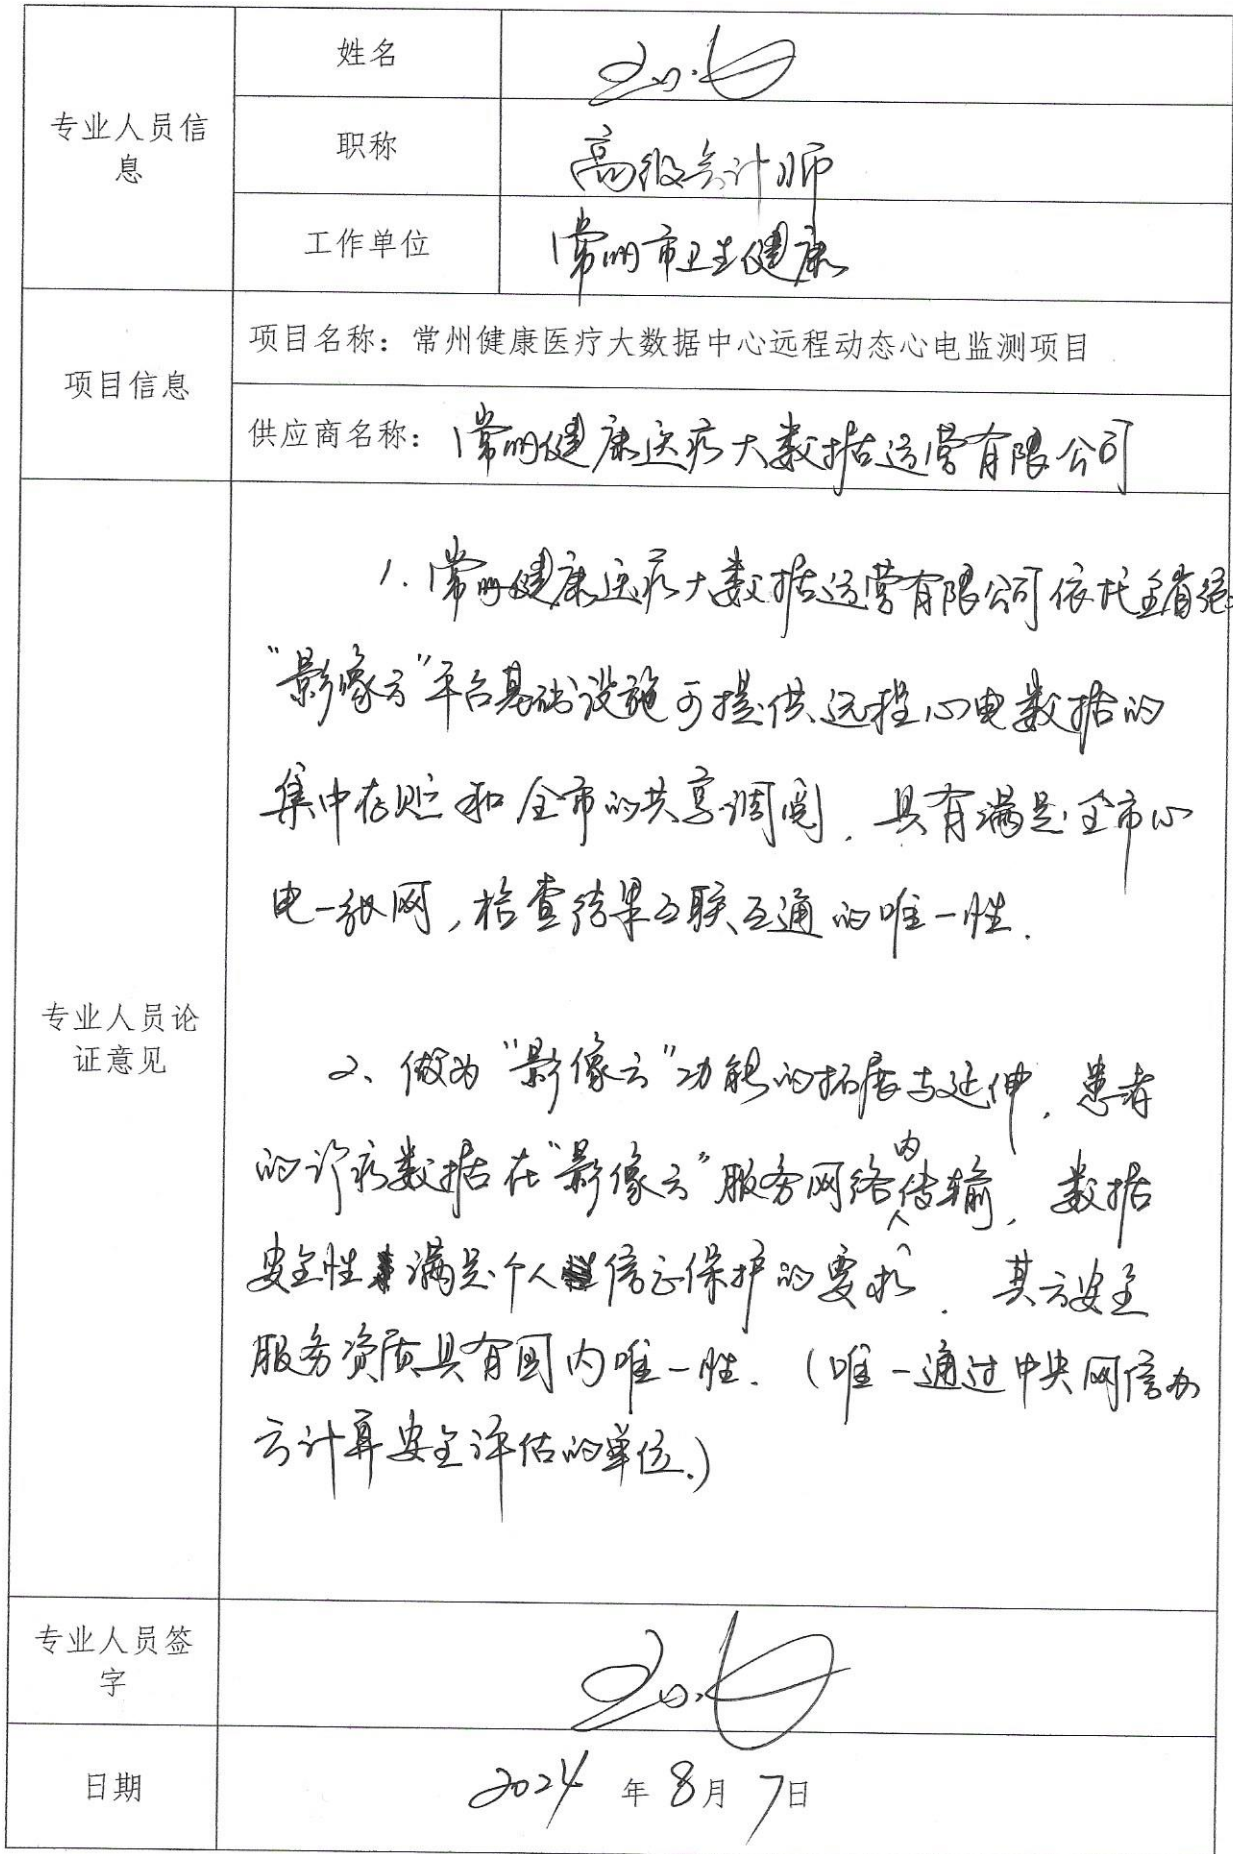 专业人员信息
姓名
职称
高级会计师
工作单位
常州市卫生健康
项目信息
项目名称：常州健康医疗大数据中心远程动态心电监测项目
供应商名称：常州健康医疗大数据运营有限公司
专业人员论证意见
1. 常州健康医疗大数据运营有限公司依托全省统
“影像云”平台基础设施可提供远程心电数据的
集中存贮和全市的共享调阅，具有满足全市心
电一张网，检查结果互联互通的唯一性.
2、做为“影像云”功能的拓展与延伸，患者
的诊疗数据在“影像云”服务网络内传输，数据
安全性满足个人信息保护的要求，其云安全
服务资质具有国内唯一性.（唯一通过中央网信办
云计算安全评估的单位.）
专业人员签字
日期
2024 年 8 月 7 日